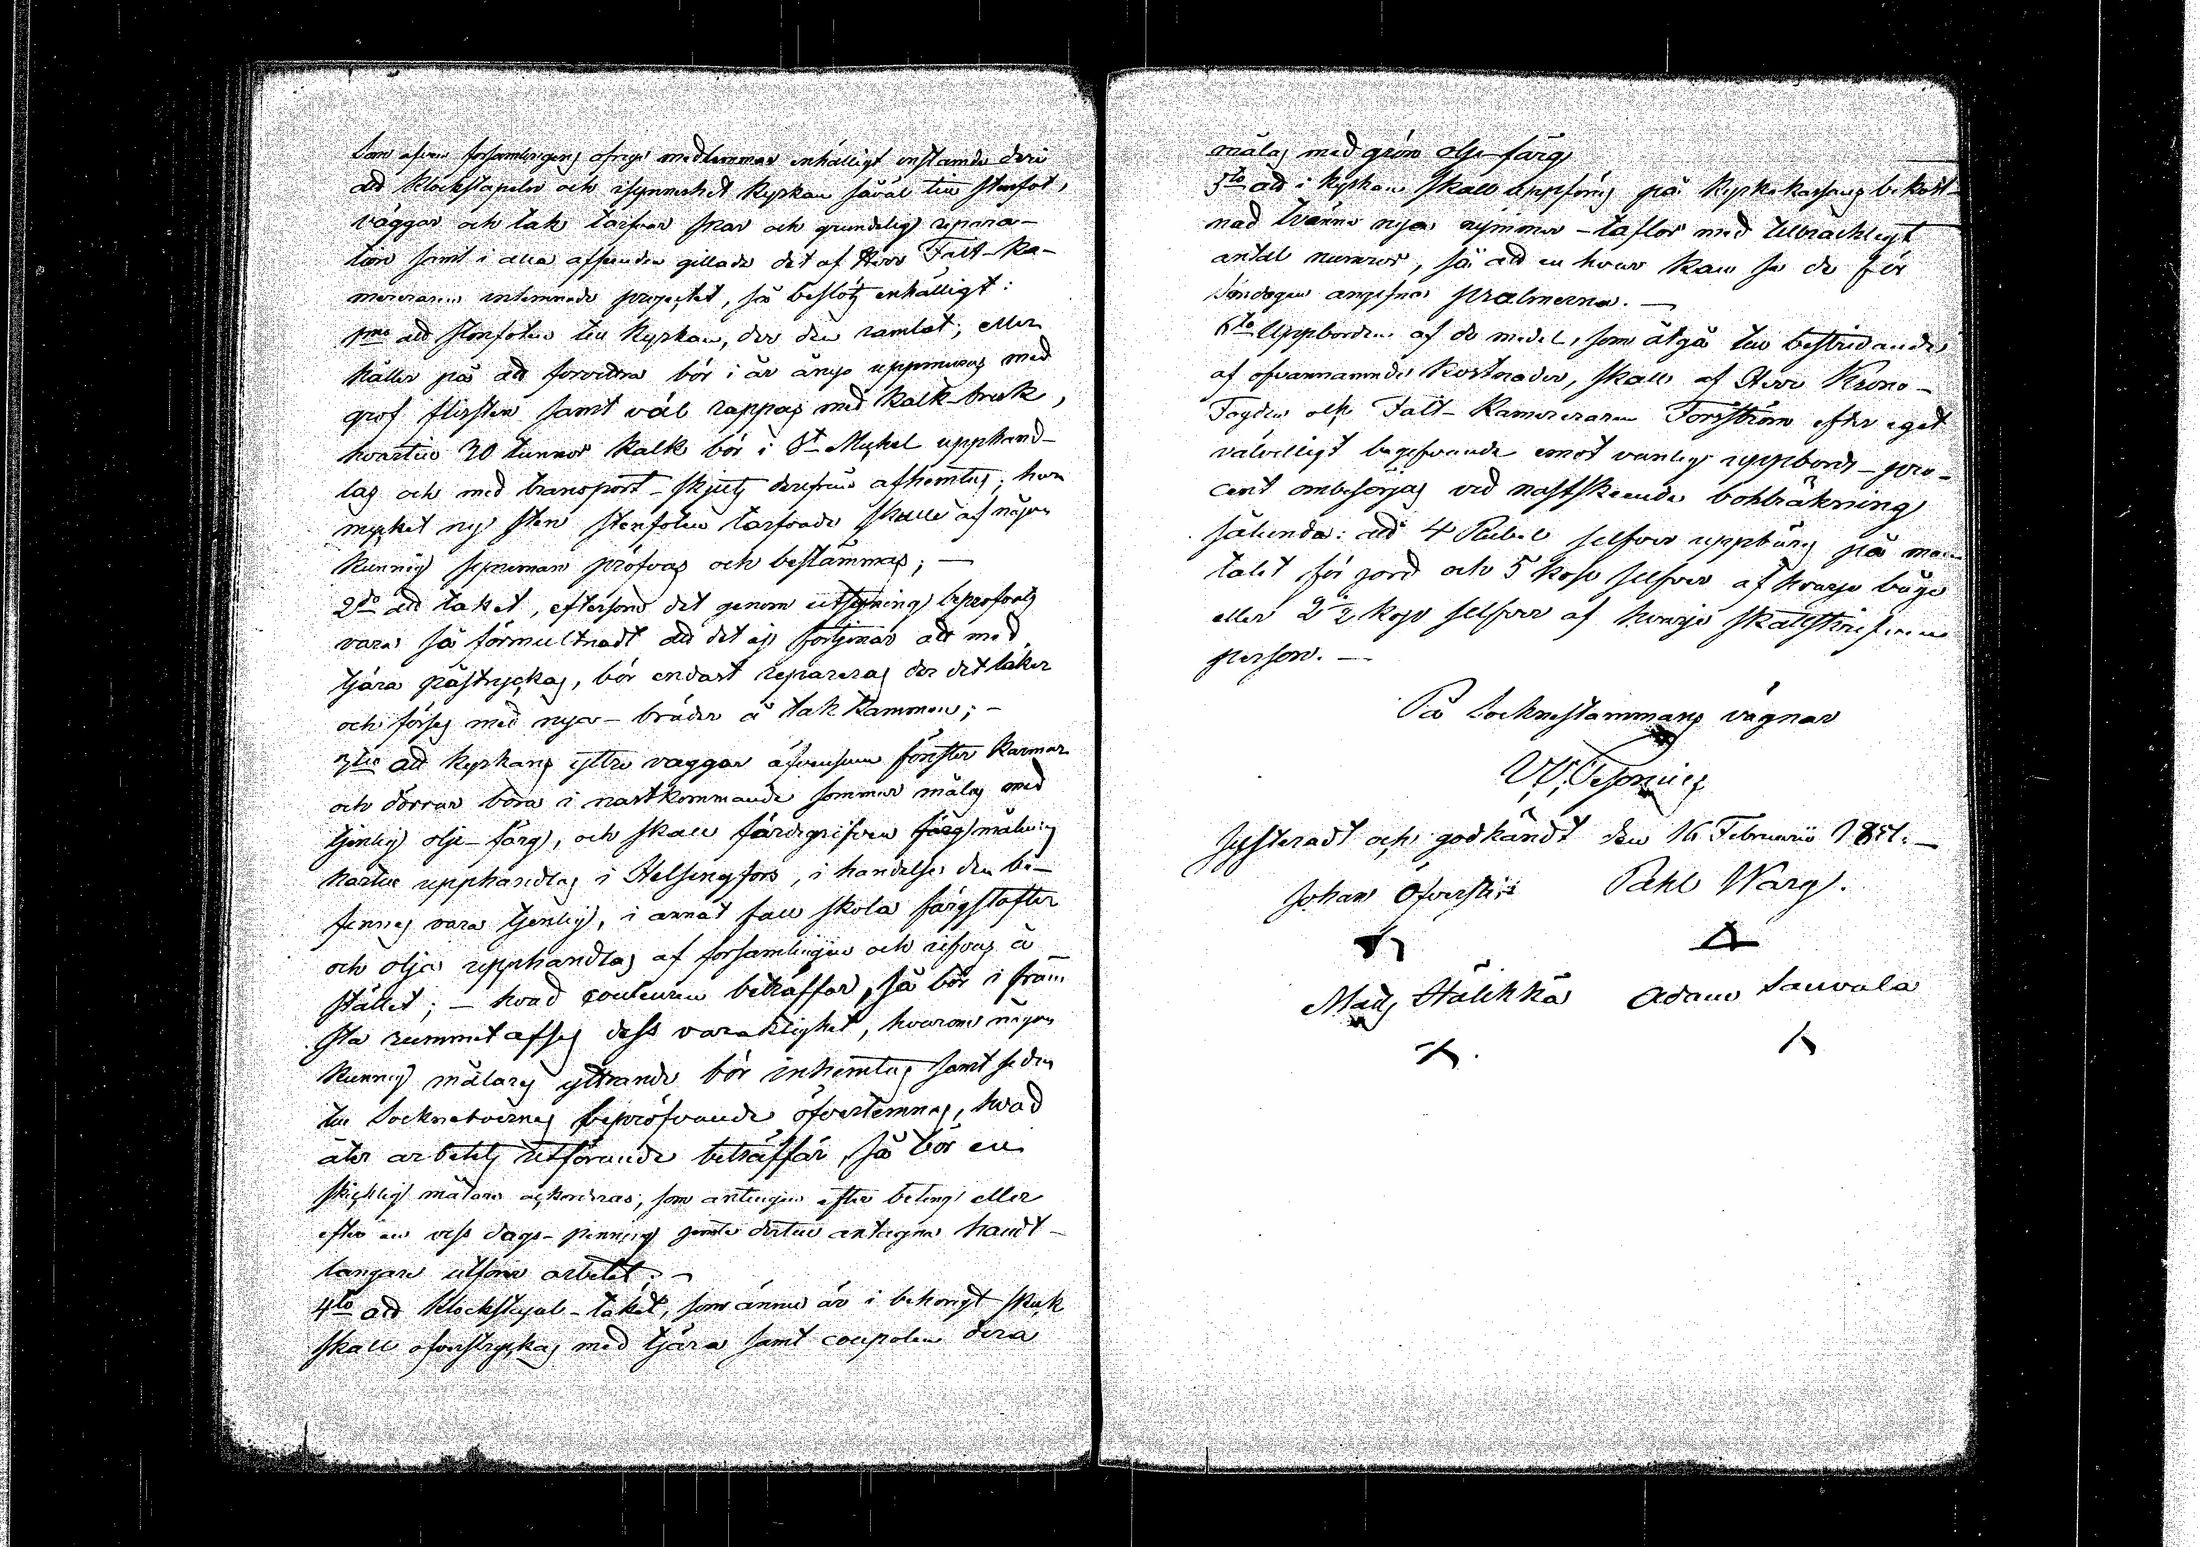 Som äfven församlingens öfrige medlemmar enhälligt instämde deri
att klockstapeln och isynnerhet kyrkan såväl till stenfot,
väggar och tak tarfvar snar och grundelig repara-
tion samt i alla afseenden gillade det af Herr Fält-Ka-
mereraren inlemnade projectet, så beslöts enhälligt:
1mo att stenfoten till kyrkan, der den ramlat, eller
håller på att forvittra bör i år ånyo uppmuras med
grof flissten samt väl rappas med kalk-bruk,
hvartill 30 tunnor kalk bör i St Mickel upphand-
las och med transport-skjuts derifrån afhemtas; huru
mycket ny sten stenfoten tarfvade skall af någon
kunnig byman pröfvas och bestämmas; —
2do att taket, eftersom det genom utsyning bepröfvats
vara så förmultnadt att det ej förtjenar att med
tjära påstrykas, bör endast repareras der det läker
och förses med nya-bräder å takkammen; -
3tio att kyrkans yttre väggar äfvensom fönster karmar
och dörrar böra i nästkommande sommar målas med
tjenlig olje-färg, och skall färdigrifven färg målning
härtill upphandlas i Helsingfors, i händelse den be-
finnes vara tjenlig, i annat fall skola färgstofter
och olja upphandlas af församlingen och rifvas å
stället; – hvad couleuren beträffar, så bör i främ-
sta rummet afses dess varaktighet, hvarom någon
kunnig målares yttrande bör inhemtas samt sedan
till Sockneboernes bepröfvande öfverlemnas, hvad
åter arbetets utförande beträffar, så bör en
skicklig målare ackorderas, som antingen efter beting eller
efter en viss dags-penning jemte dertill antagne handt-
langare utförer arbetet; -
4to att klockstapel-taket, som ännu är i behörigt skick
skall öfverstrykas med tjära samt coupolen dera
målas med grön olje-färg
5to att i kyrkan skall uppföras på kyrkokassans bekost-
nad tvänne nya nummer-taflor med tillräckligt
antal numror, så att en hvar kan se de för
Söndagen angifna psalmerna. —
6to Uppbörden af de medel, som åtgå till bestridande
af ofvannämnde kostnader, skall af Herr Krono-
Fogden och Fält-Kamereraren Forsström efter eget
välvilligt begifvande emot vanlig uppbörds-pro-
cent ombesörjas vid nästskeende bohbräkning
sålunda: att 4 Rubel silfver uppbäres på man-
talet för jord och 5 kop silfver af hvarje båge
eller 2½ kop silfver af hvarje skattskrifven
person. —
På Sockenstämmans vägnar
Justeradt och godkändt den 16 Februarii
Johan Öfverstin Påhl Warg.
Mats Hälikkä Adam Sauvala